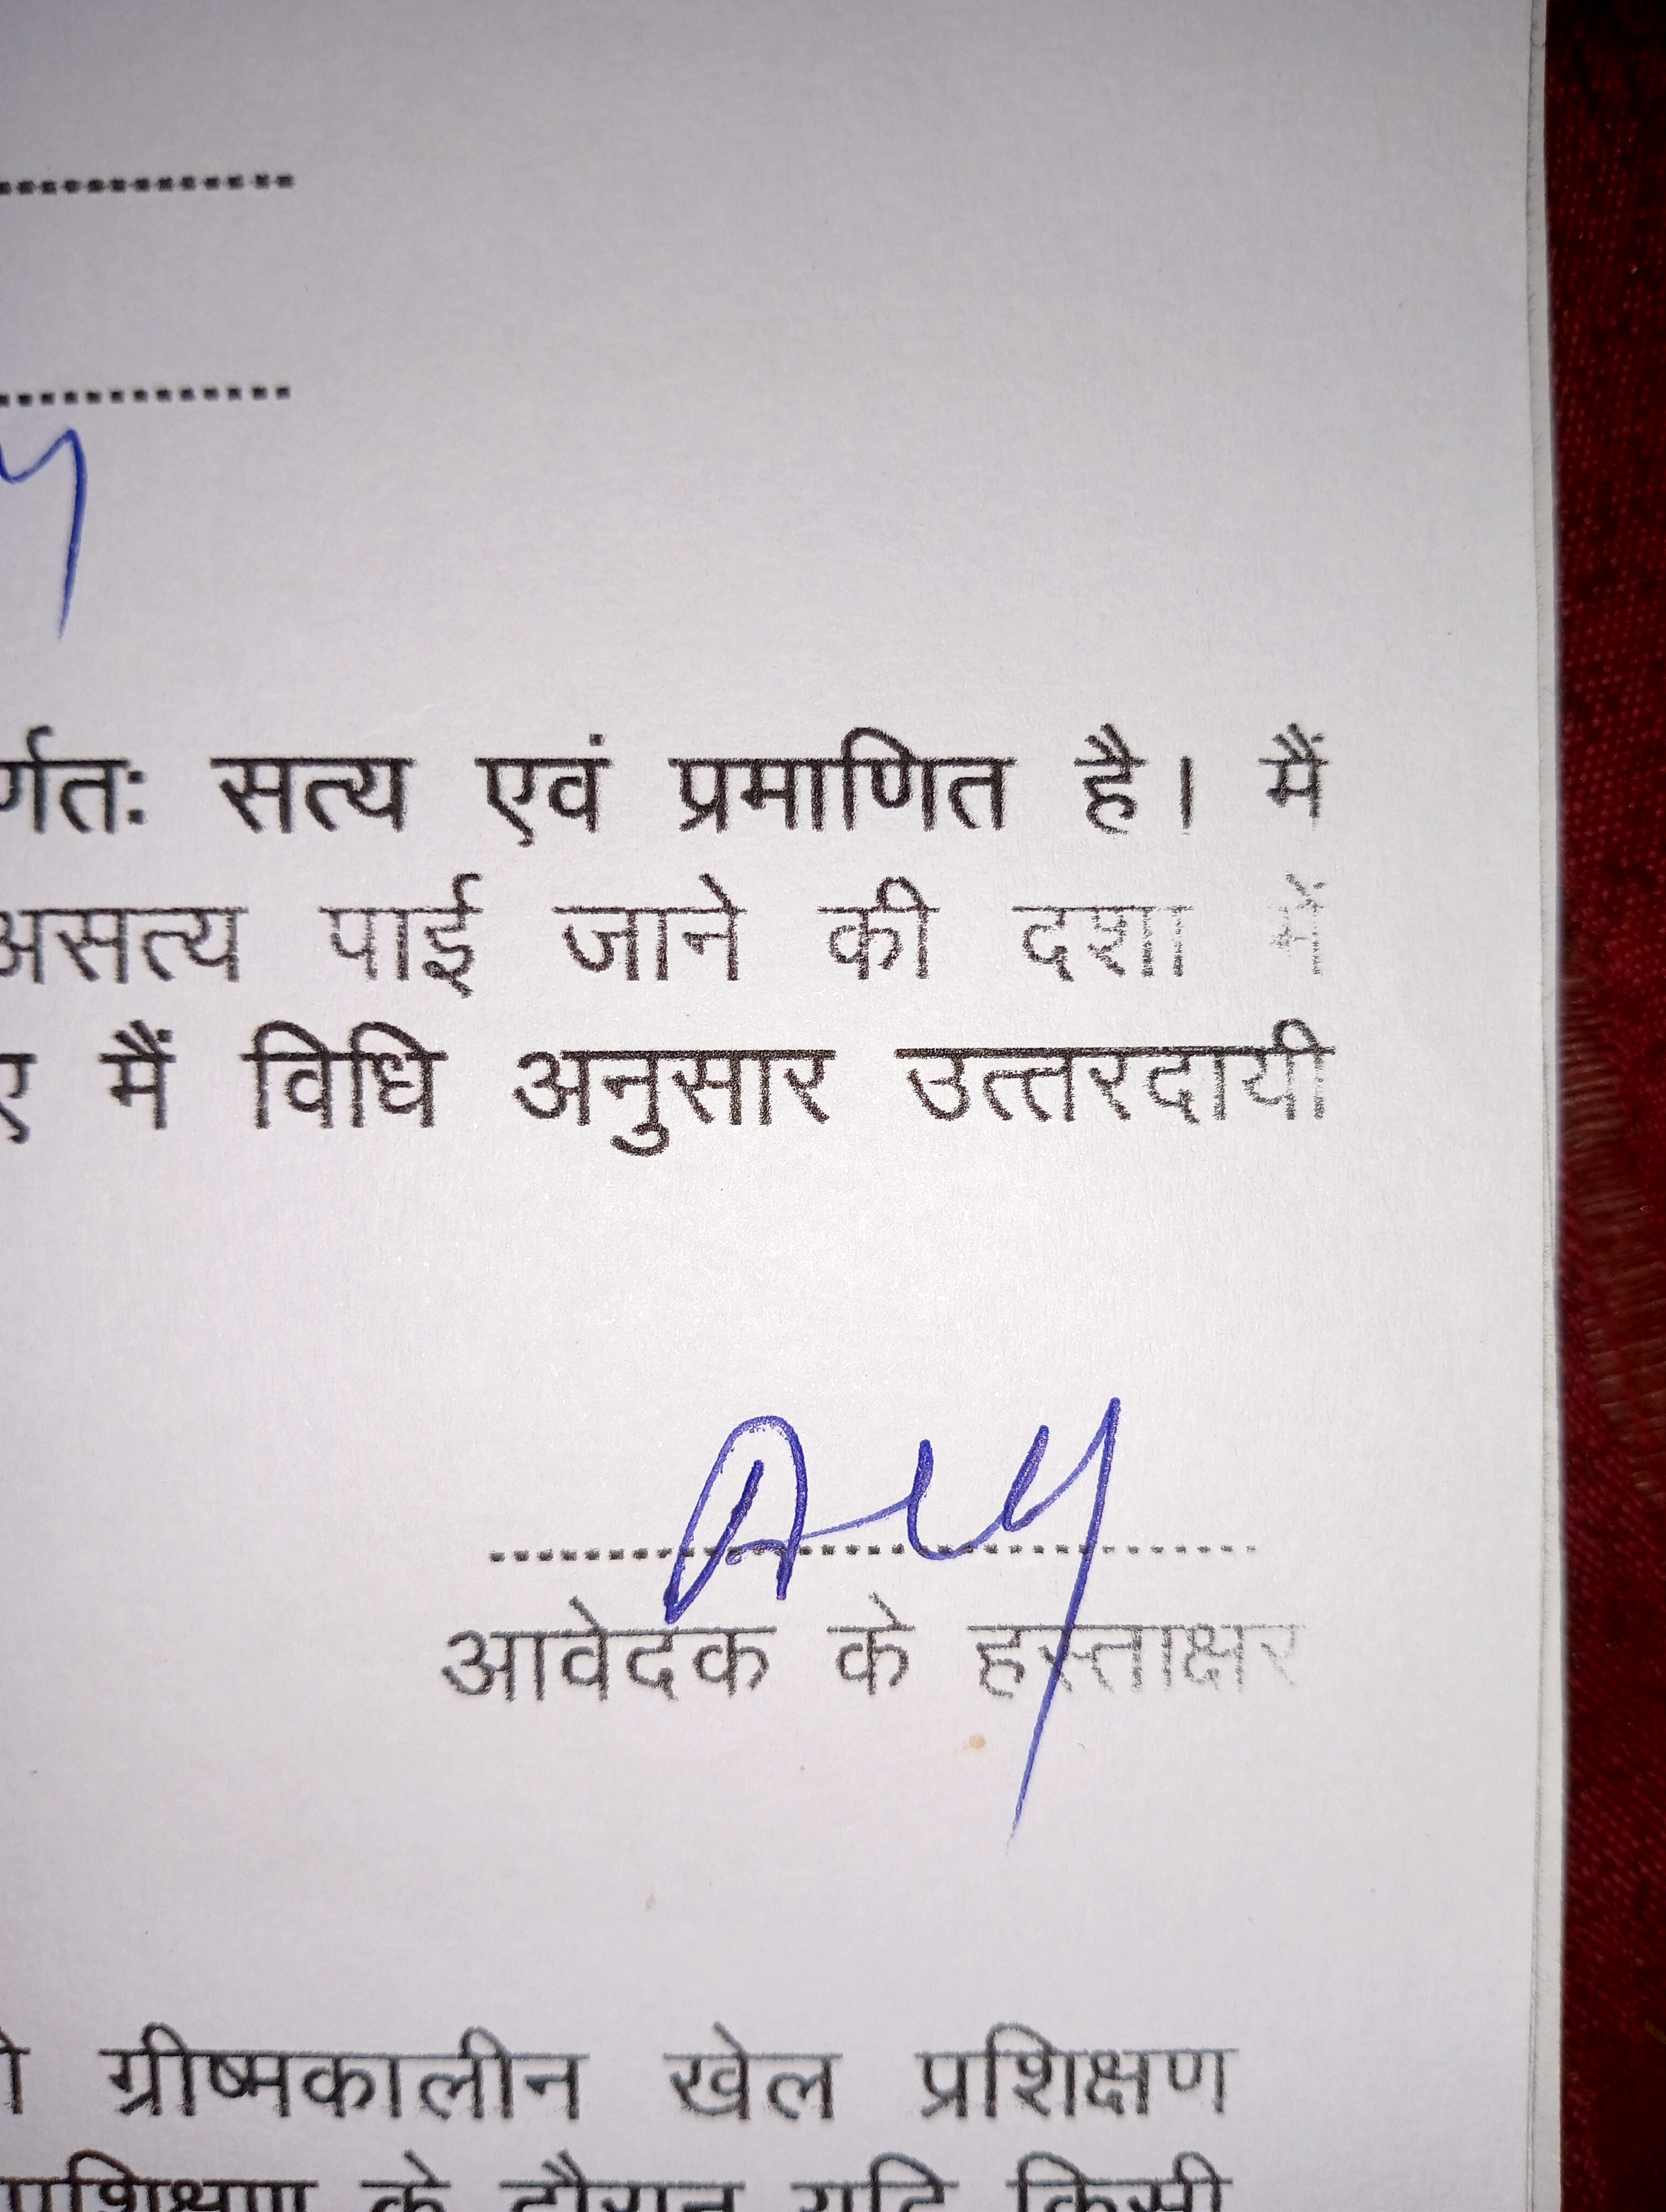 र्णतः सत्य एवं प्रमाणित है। मैं
असत्य पाई जाने की दशा में
मैं विधि अनुसार उत्तरदायी
आवेदक के हस्ताक्षर
ग्रीष्मकालीन खेल प्रशिक्षण
प्रशिक्षण के दौरान यदि किसी